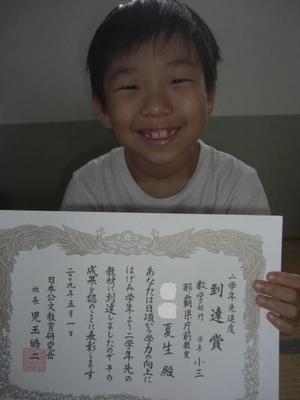 二学年先達度
到達賞
数学部門 学年 小三
那覇県庁前教室
夏生 殿
あなたは日頃から学力の向上に
はげみ学年より二学年先の
教材に到達しましたのでその
成果を認めここに表彰します
二〇〇九年五月一日
日本公文教育研究会
社長 児玉皓二